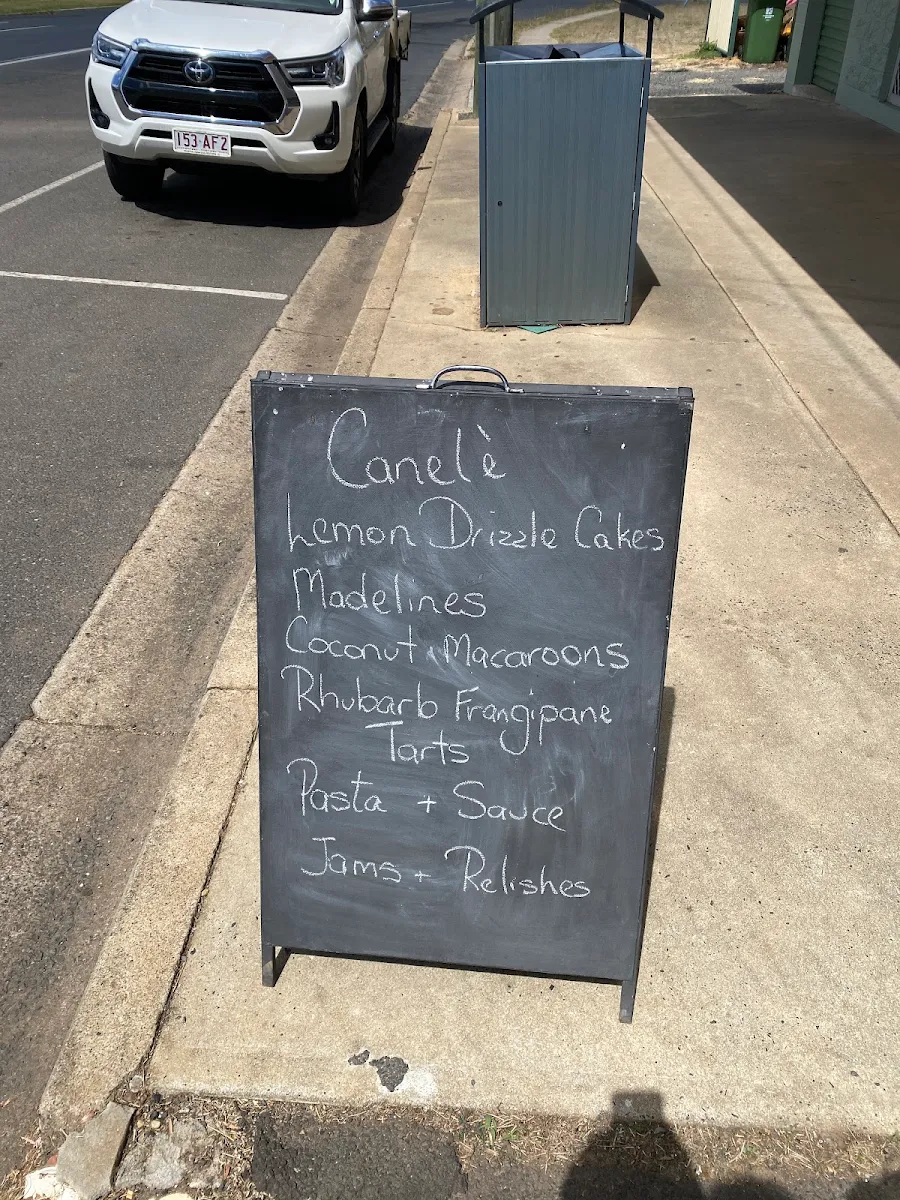 153 AF2
Canelè
Lemon Drizzle Cakes
Madelines
Coconut Macaroons
Rhubarb Frangipane
Tarts
Pasta + Sauce
Jams + Relishes